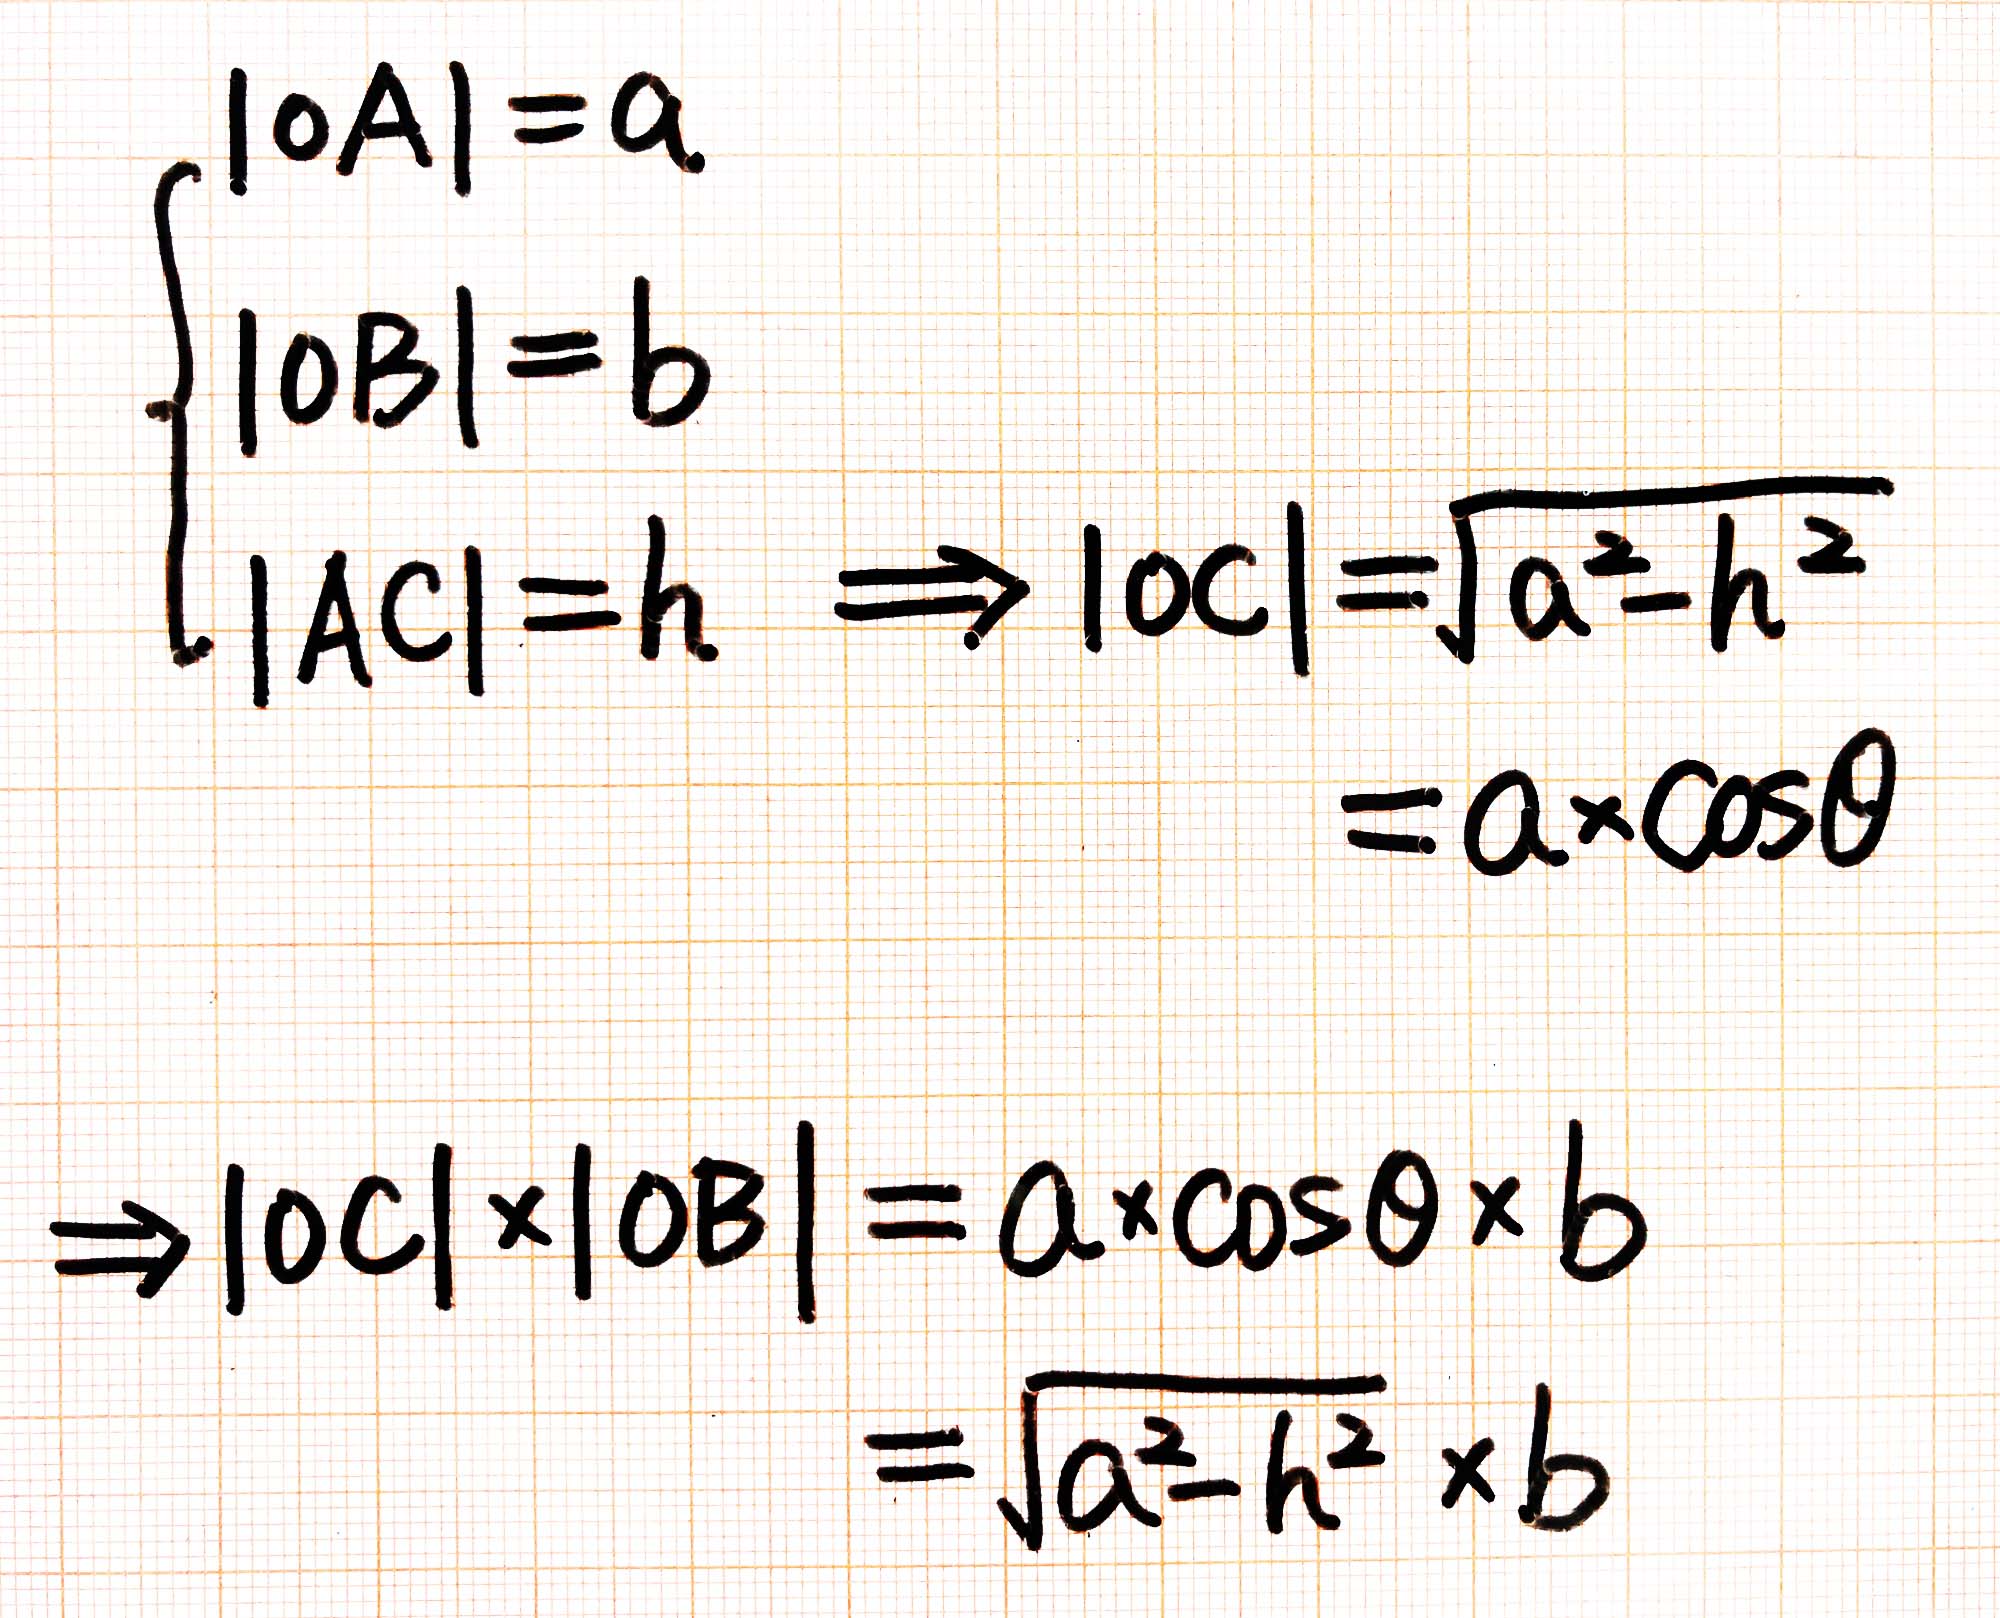 |OA| = a
|OB| = b
|AC| = h ⇒ |OC| = √(a²-h²)
= a×cosθ
⇒ |OC|×|OB| = a×cosθ×b
= √(a²-h²) ×b